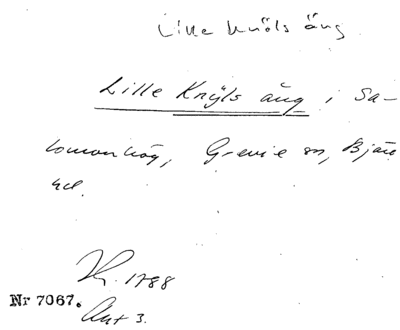 Lille Knöls äng
Lille Knÿls äng i Sa-
lomonhög, Grevie sn, Bjäre
hd.
1788
Nr 7067.
Akt 3.